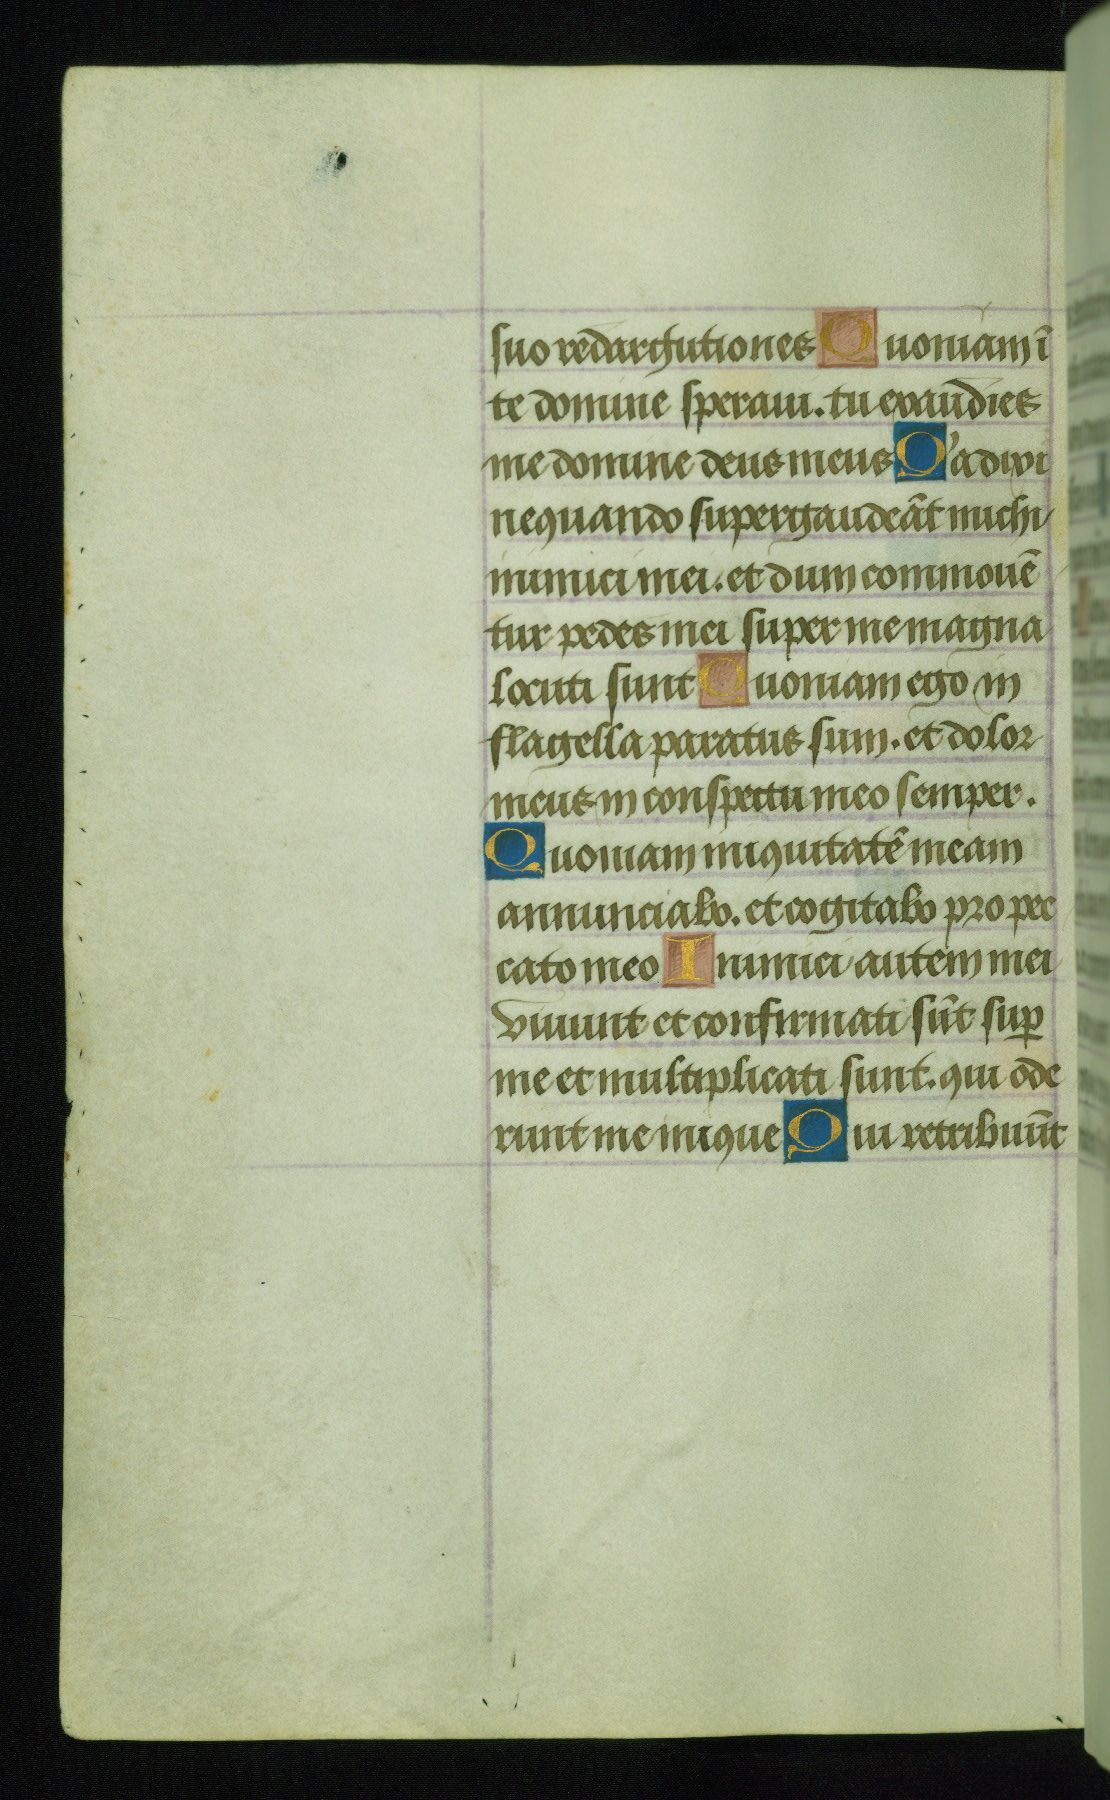 suo redargutiones Quoniam ī
te domine speraui. tu exaudies
me domine deus meus Q'a dixi
nequando supergaudeāt michi
inimici mei. et dum commouē
tur pedes mei super me magna
locuti sunt Quoniam ego in
flagella paratus sum. et dolor
meus in conspectu meo semper.
Quoniam iniquitatē meam
annunciabo. et cogitabo pro pec
cato meo Inimici autem mei
viuunt et confirmati sūt suꝑ
me et multiplicati sunt. qui ode
runt me inique Qui retribuūt